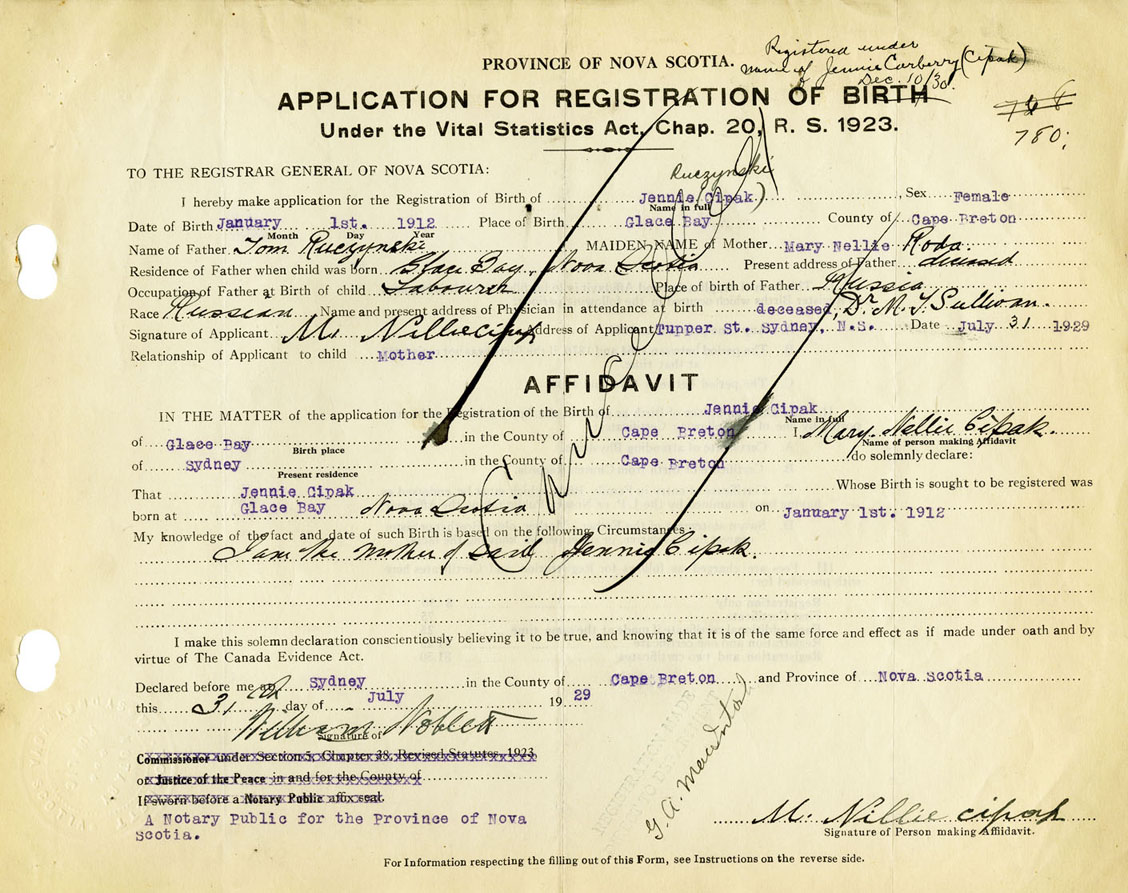 Registered under
name of Jennie Carberry (Cipak)
Dec. 10/30.
PROVINCE OF NOVA SCOTIA.
APPLICATION FOR REGISTRATION OF BIRTH
780.
Under the Vital Statistics Act, Chap. 20, R. S. 1923.
TO THE REGISTRAR GENERAL OF NOVA SCOTIA:
Ruczynski
I hereby make application for the Registration of Birth of Jennie Cipak) Sex Female
Name in full
Date of Birth January 1st. 1912 Place of Birth Glace Bay County of Cape Breton
Month Day Year
Name of Father Tom Ruczynski MAIDEN NAME of Mother Mary Nellie Roda
Residence of Father when child was born Glace Bay, Nova Scotia Present address of Father deceased
Occupation of Father at Birth of child Labourer Place of birth of Father Russia
Race Russian Name and present address of Physician in attendance at birth deceased, Dr. M. T. Sullivan.
Signature of Applicant M. Nillie cipak Address of Applicant Tupper St. Sydney, N.S. Date July 31 1929
Relationship of Applicant to child Mother
AFFIDAVIT
IN THE MATTER of the application for the Registration of the Birth of Jennie Cipak
Name in full
of Glace Bay in the County of Cape Breton I, Mary Nellie Cipak.
Birth place Name of person making Affidavit
of Sydney in the County of Cape Breton do solemnly declare:
Present residence
That Jennie Cipak Whose Birth is sought to be registered was
born at Glace Bay Nova Scotia on January 1st. 1912
My knowledge of the fact and date of such Birth is based on the following Circumstances:
I am the mother of said Jennie Cipak.
Cancelled
I make this solemn declaration conscientiously believing it to be true, and knowing that it is of the same force and effect as if made under oath and by
virtue of The Canada Evidence Act.
Declared before me at Sydney in the County of Cape Breton and Province of Nova Scotia
this 31 day of July 1929
William Noblett
Signature of
Commissioner under Section 5, Chapter 38, Revised Statutes, 1923
or Justice of the Peace in and for the County of
If sworn before a Notary Public affix seal.
A Notary Public for the Province of Nova
Scotia.
M. Nillie cipak
Signature of Person making Affidavit.
For Information respecting the filling out of this Form, see Instructions on the reverse side.